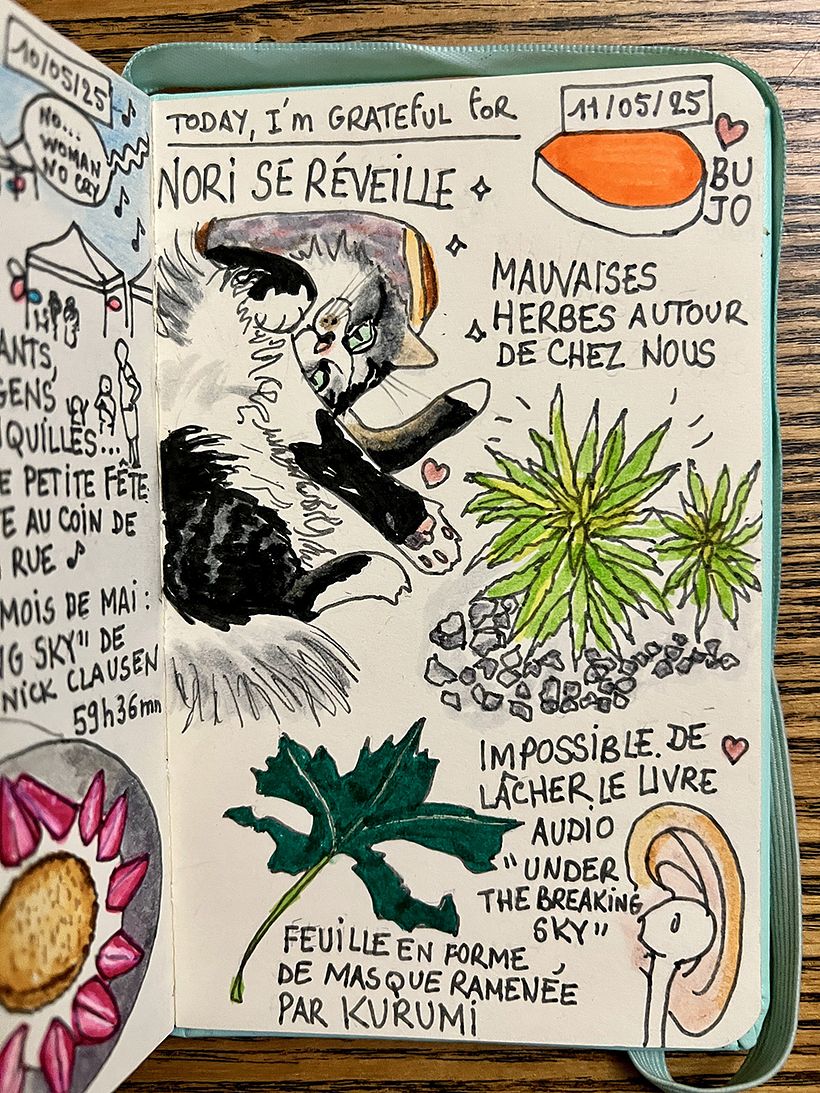 10/05/25
NO...
WOMAN
NO CRY
ANTS,
GENS
QUILLES...
E PETITE FÊTE
E AU COIN DE
RUE
MOIS DE MAI :
NG SKY" DE
NICK CLAUSEN
59h36mn
TODAY, I'm GRATEFUL for
11/05/25
NORI SE RÉVEILLE
BU
JO
MAUVAISES
HERBES AUTOUR
DE CHEZ NOUS
IMPOSSIBLE DE
LÂCHER LE LIVRE
AUDIO
"UNDER
THE BREAKING
SKY"
FEUILLE EN FORME
DE MASQUE RAMENÉE
PAR KURUMI